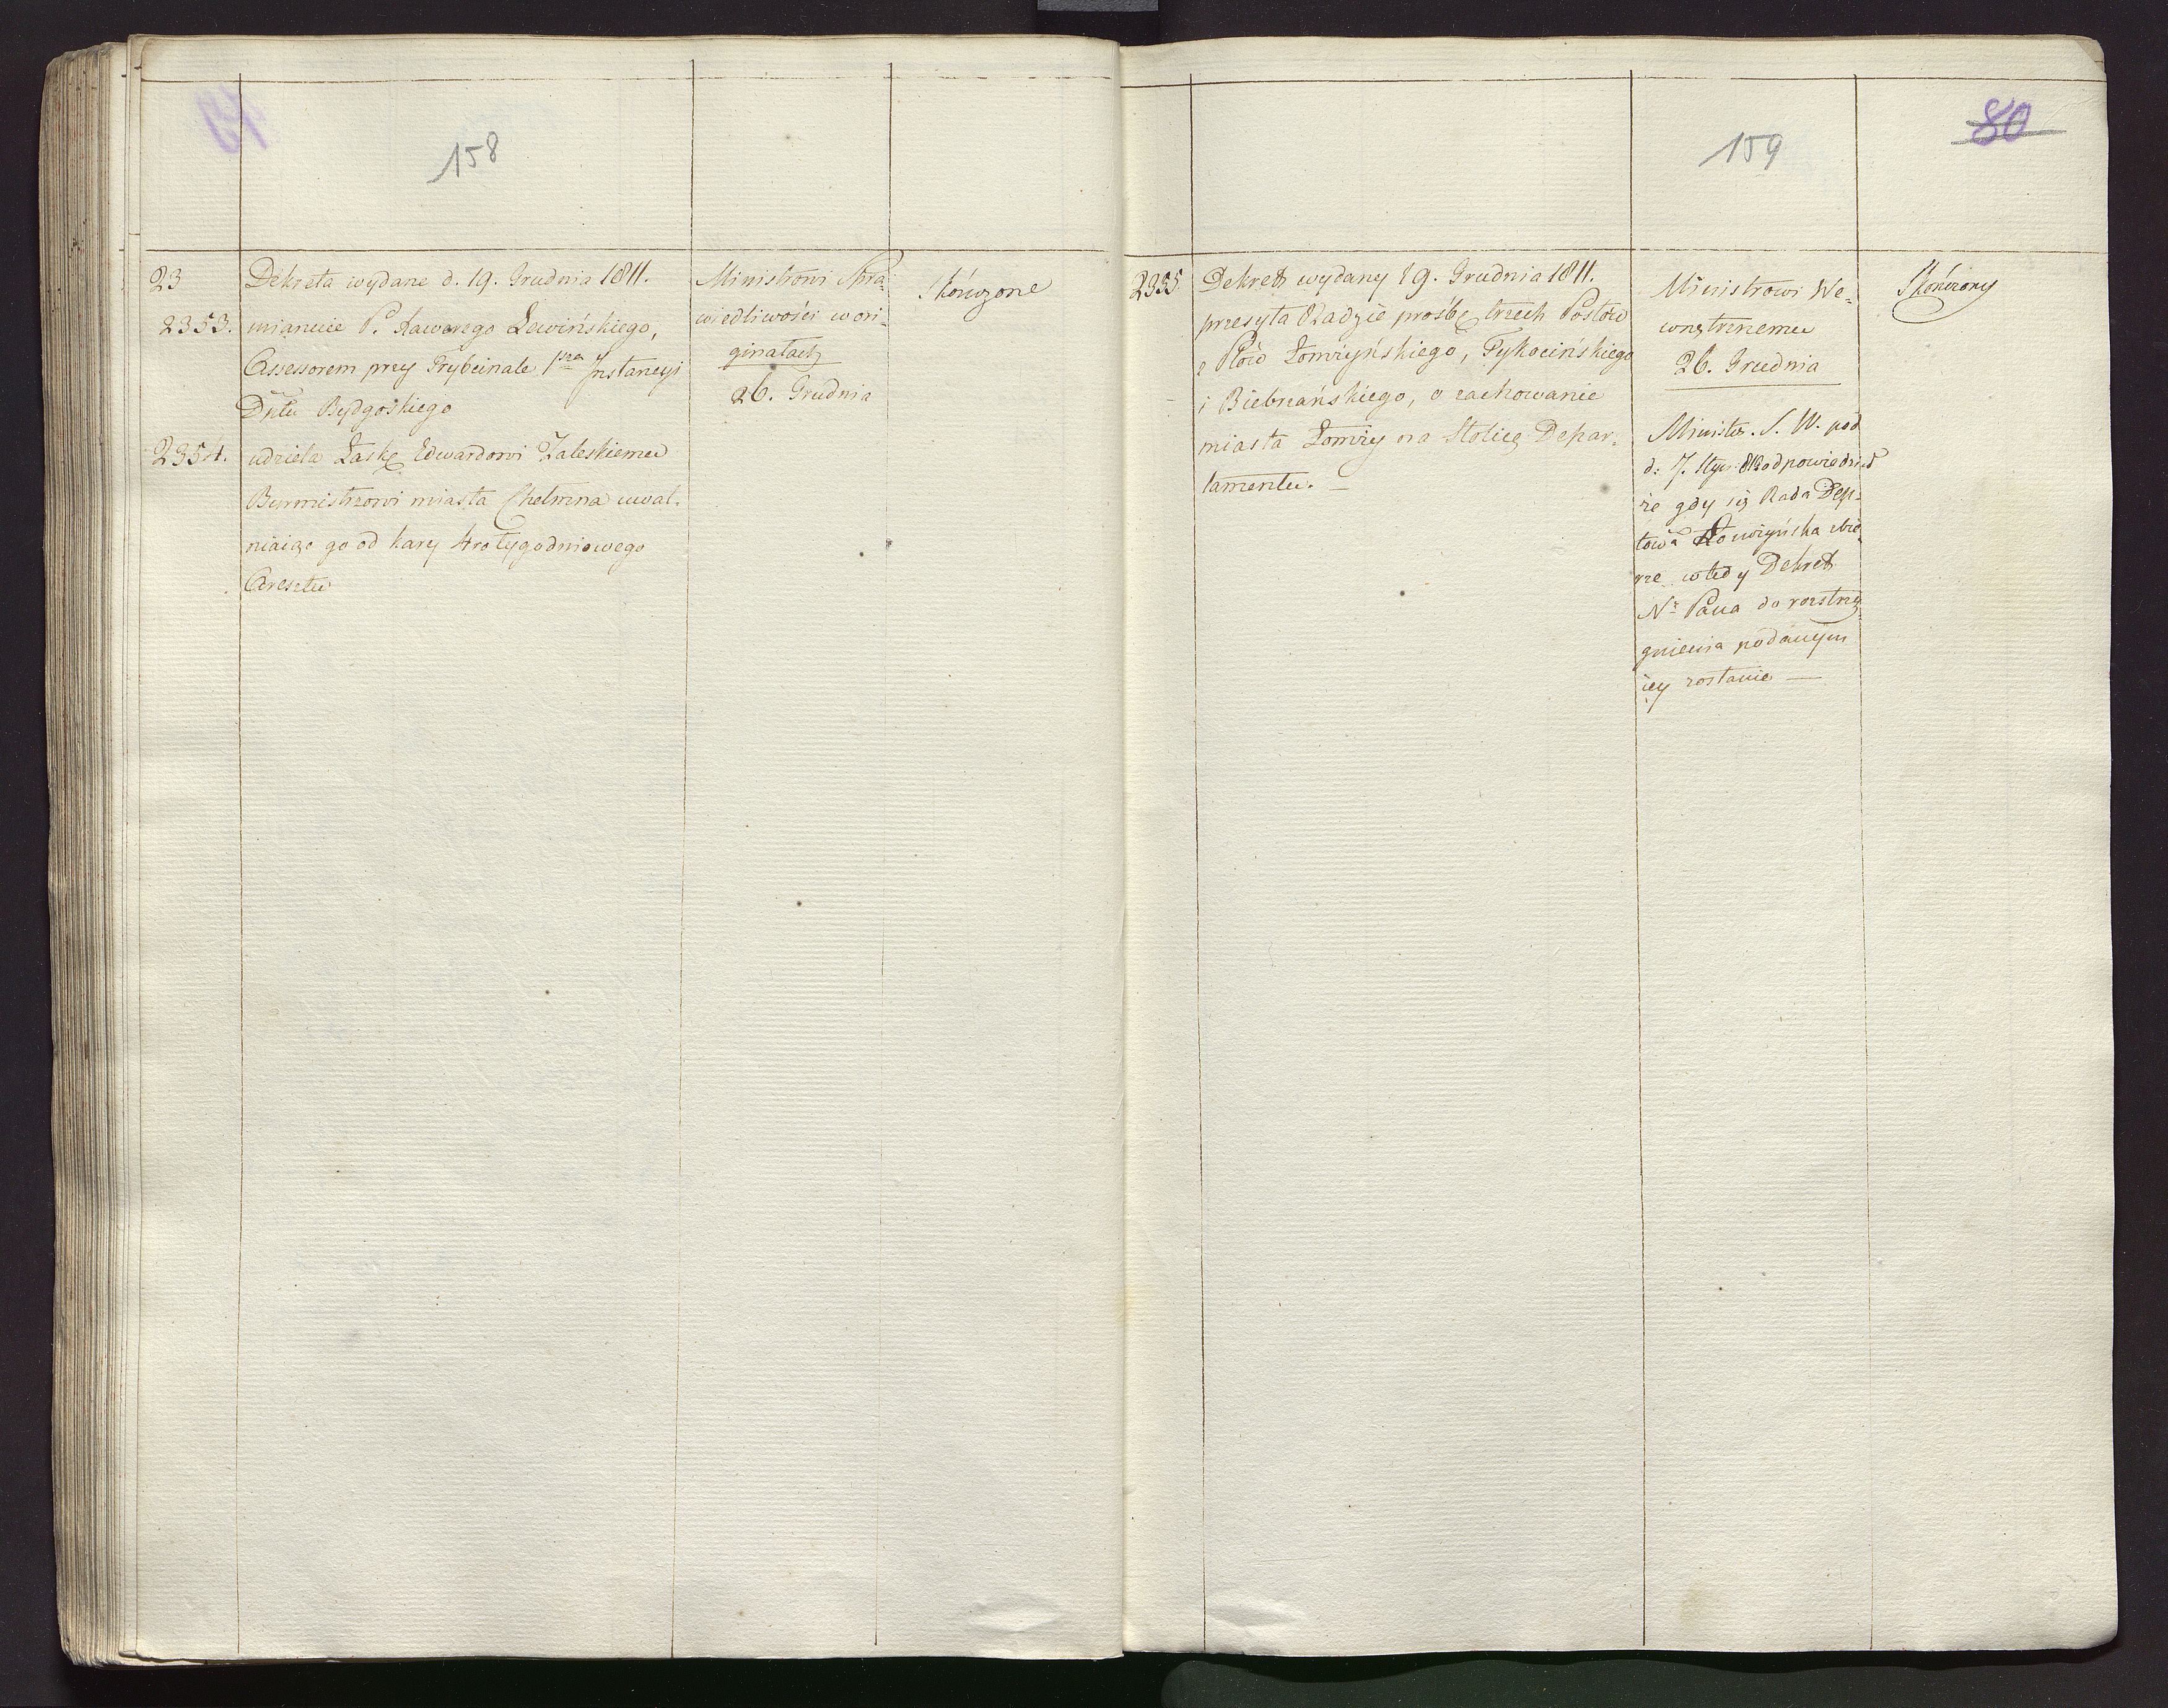 158
23
Dekreta wydane d. 19. Grudnia 1811.
2353.
mianuie P. Xawerego Lewińskiego,
Assessorem przy Trybunale 1szey Instancyi
Dptu Bydgoskiego
2354.
udziela Łaskę Edwardowi Zaleskiemu
Burmistrzowi miasta Chełmna uwal-
niaiąc go od kary 4ro tygodniowego
Aresztu
Ministrowi Spra-
wiedliwości w ori-
ginałach
26. Grudnia
Skończone
159
80
2355.
Dekret wydany 19. Grudnia 1811.
przesyła Radzie prośbę trzech Posłów
z Ptów Łomżyńskiego, Tykocińskiego
i Biebrzańskiego, o zachowanie
miasta Łomży na Stolicę Depar-
tamentu. —
Ministrowi We-
wnętrznemu
26. Grudnia
Minister S. W. pod
d: 7. Stycz: 812 odpowiedział
że gdy się Rada Dep-
towa Łomżyńska zbie-
rze wtedy Dekret
N. Pana do rozstrzy-
gnienia podanym
iey zostanie —
Skończony